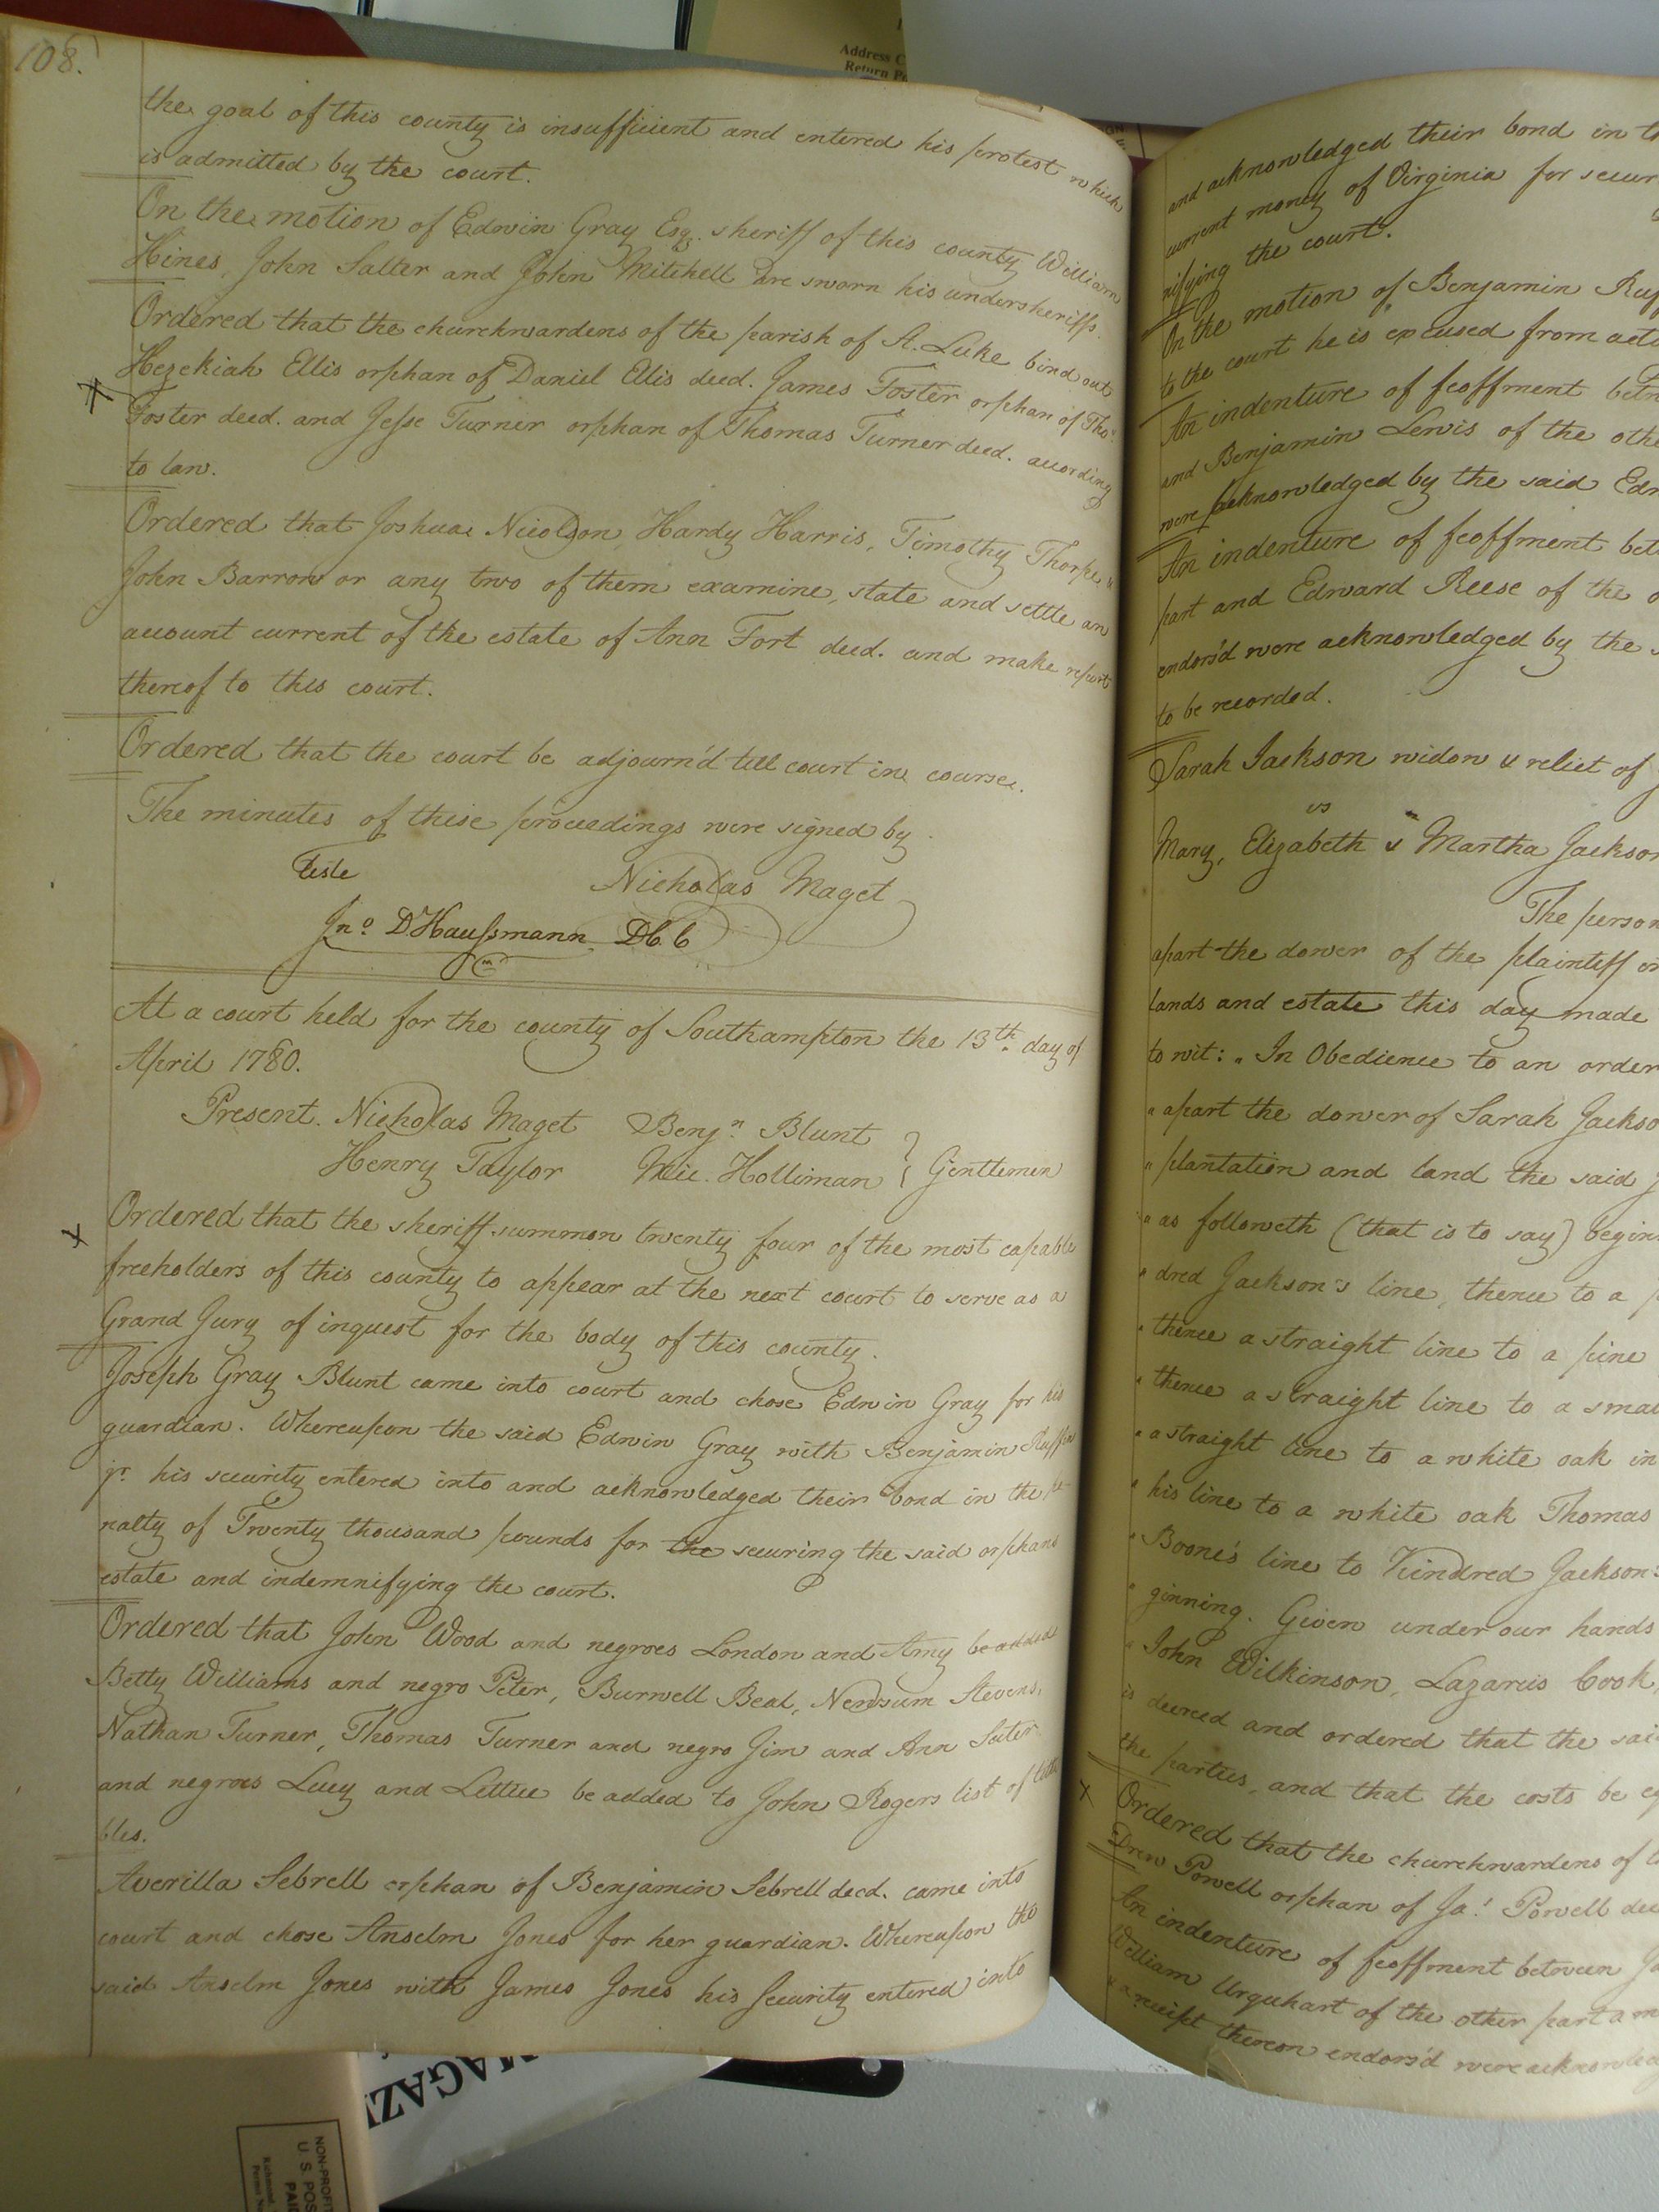 108.
the goal of this county is insufficient and entered his protest which
is admitted by the court.
On the motion of Edwin Gray Esq. sheriff of this county William
Hines, John Salter and John Mitchell are sworn his undersheriffs.
Ordered that the churchwardens of the parish of St. Luke bind out
Hezekiah Ellis orphan of Daniel Ellis decd. James Foster orphan of Thos.
Foster decd. and Jesse Turner orphan of Thomas Turner decd. according
to law.
Ordered that Joshua Nicolson, Hardy Harris, Timothy Thorpe &
John Barrow or any two of them examine, state and settle an
account current of the estate of Ann Fort decd. and make report
thereof to this court.
Ordered that the court be adjourn'd till court in course.
The minutes of these proceedings were signed by
Teste
Nicholas Maget
Jno. D Haussmann DCC
At a court held for the county of Southampton the 13th. day of
April 1780.
Present. Nicholas Maget Benjn. Blunt
Henry Taylor Mic. Holliman } Gentlemen
Ordered that the sheriff summon twenty four of the most capable
freeholders of this county to appear at the next court to serve as a
Grand Jury of inquest for the body of this county.
Joseph Gray Blunt came into court and chose Edwin Gray for his
guardian. Whereupon the said Edwin Gray with Benjamin Ruffin
jr. his security entered into and acknowledged their bond in the pe-
nalty of Twenty thousand pounds for the securing the said orphans
estate and indemnifying the court.
Ordered that John Wood and negroes London and Amy be added
Betty Williams and negro Peter, Burwell Beal, Newsum Stevens,
Nathan Turner, Thomas Turner and negro Jim and Ann Suter
and negroes Lucy and Lettice be added to John Rogers list of titha
bles.
Averilla Sebrell orphan of Benjamin Sebrell decd. came into
court and chose Anselm Jones for her guardian. Whereupon the
said Anselm Jones with James Jones his security entered into
and acknowledged their bond in
current money of Virginia for secur
nifying the court.
On the motion of Benjamin Ruf
to the court he is excused from acti
An indenture of feoffment betw
and Benjamin Lewis of the othe
were acknowledged by the said Edw
An indenture of feoffment bet
part and Edward Reese of the o
endors'd were acknowledged by the s
to be recorded.
Sarah Jackson widow & relict of
vs
Mary, Elizabeth & Martha Jackson
The person
apart the dower of the plaintiff in
lands and estate this day made
to wit: " In Obedience to an order
" apart the dower of Sarah Jackso
" plantation and land the said J
" as followeth (that is to say) begin
" dred Jackson's line, thence to a p
" thence a straight line to a pine
" thence a straight line to a smal
" a straight line to a white oak in
" his line to a white oak Thomas
" Boone's line to Kindred Jackson's
" ginning. Given under our hands
" John Wilkinson, Lazarus Cook,
is decreed and ordered that the sai
the parties, and that the costs be eq
Ordered that the churchwardens of
Drew Powell orphan of Jas. Powell dec
An indenture of feoffment between Ja
William Urquhart of the other part a m
& a receipt thereon endors'd were acknowledg
Address C
Return Po
MAGAZ
NON-PROFIT
U. S. POS
PAI
Richmond,
Permit No